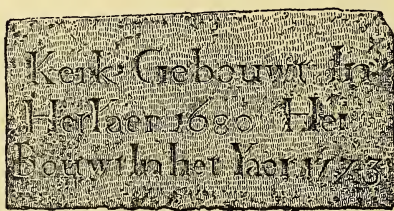 Kerk Gebouwt In
Het Iaer 1680 Her
bouwt In het Yaer 1773